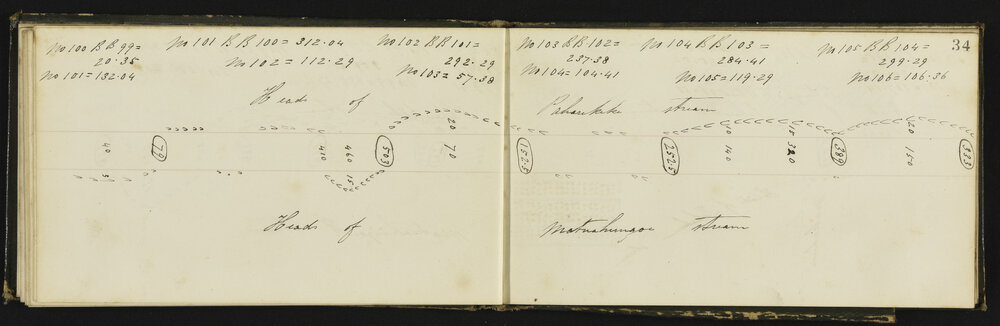 No 100 BB 99 =
20.35
No 101 = 132.04
No 101 BB 100 = 312.04
No 102 = 112.29
No 102 BB 101 =
292.29
No 103 = 57.38
No 103 BB 102 =
237.38
No 104 = 104.41
No 104 BB 103 =
284.41
No 105 = 119.29
No 105 BB 104 =
299.29
No 106 = 106.36
34
Heads of stream
40
5
79
410
460
15
503
20
70
1525
2525
10
140
15
320
389
20
150
333
Heads of stream